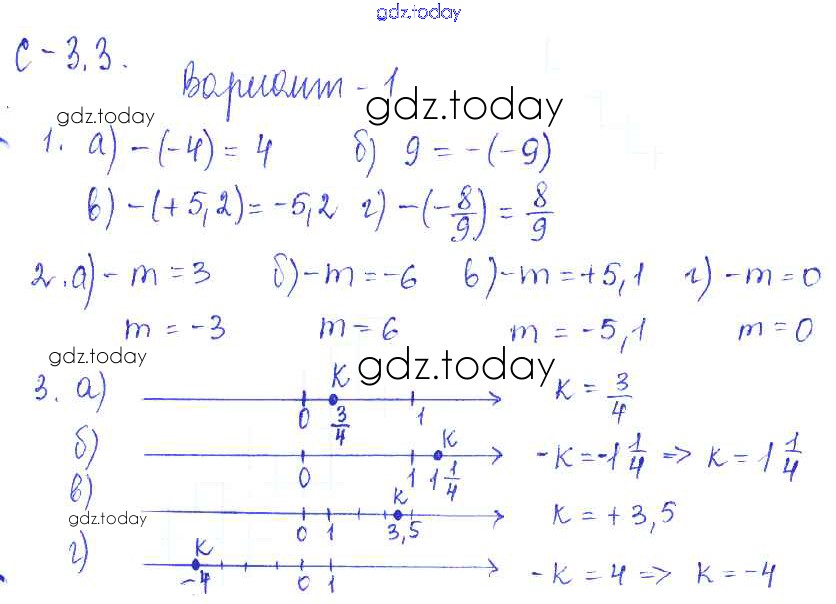 gdz.today
С-3.3.
Вариант-1
gdz.today gdz.today
1. а) -(-4) = 4 б) 9 = -(-9)
в) -(+5,2) = -5,2 г) -(-8/9) = 8/9
2. а) -m = 3 б) -m = -6 в) -m = +5,1 г) -m = 0
m = -3 m = 6 m = -5,1 m = 0
gdz.today gdz.today
3. а) K 0 3/4 1 K = 3/4
б) K 0 1 1 1/4 -K = -1 1/4 => K = 1 1/4
в) K 0 1 3,5 K = +3,5
gdz.today
г) K -4 0 1 -K = 4 => K = -4